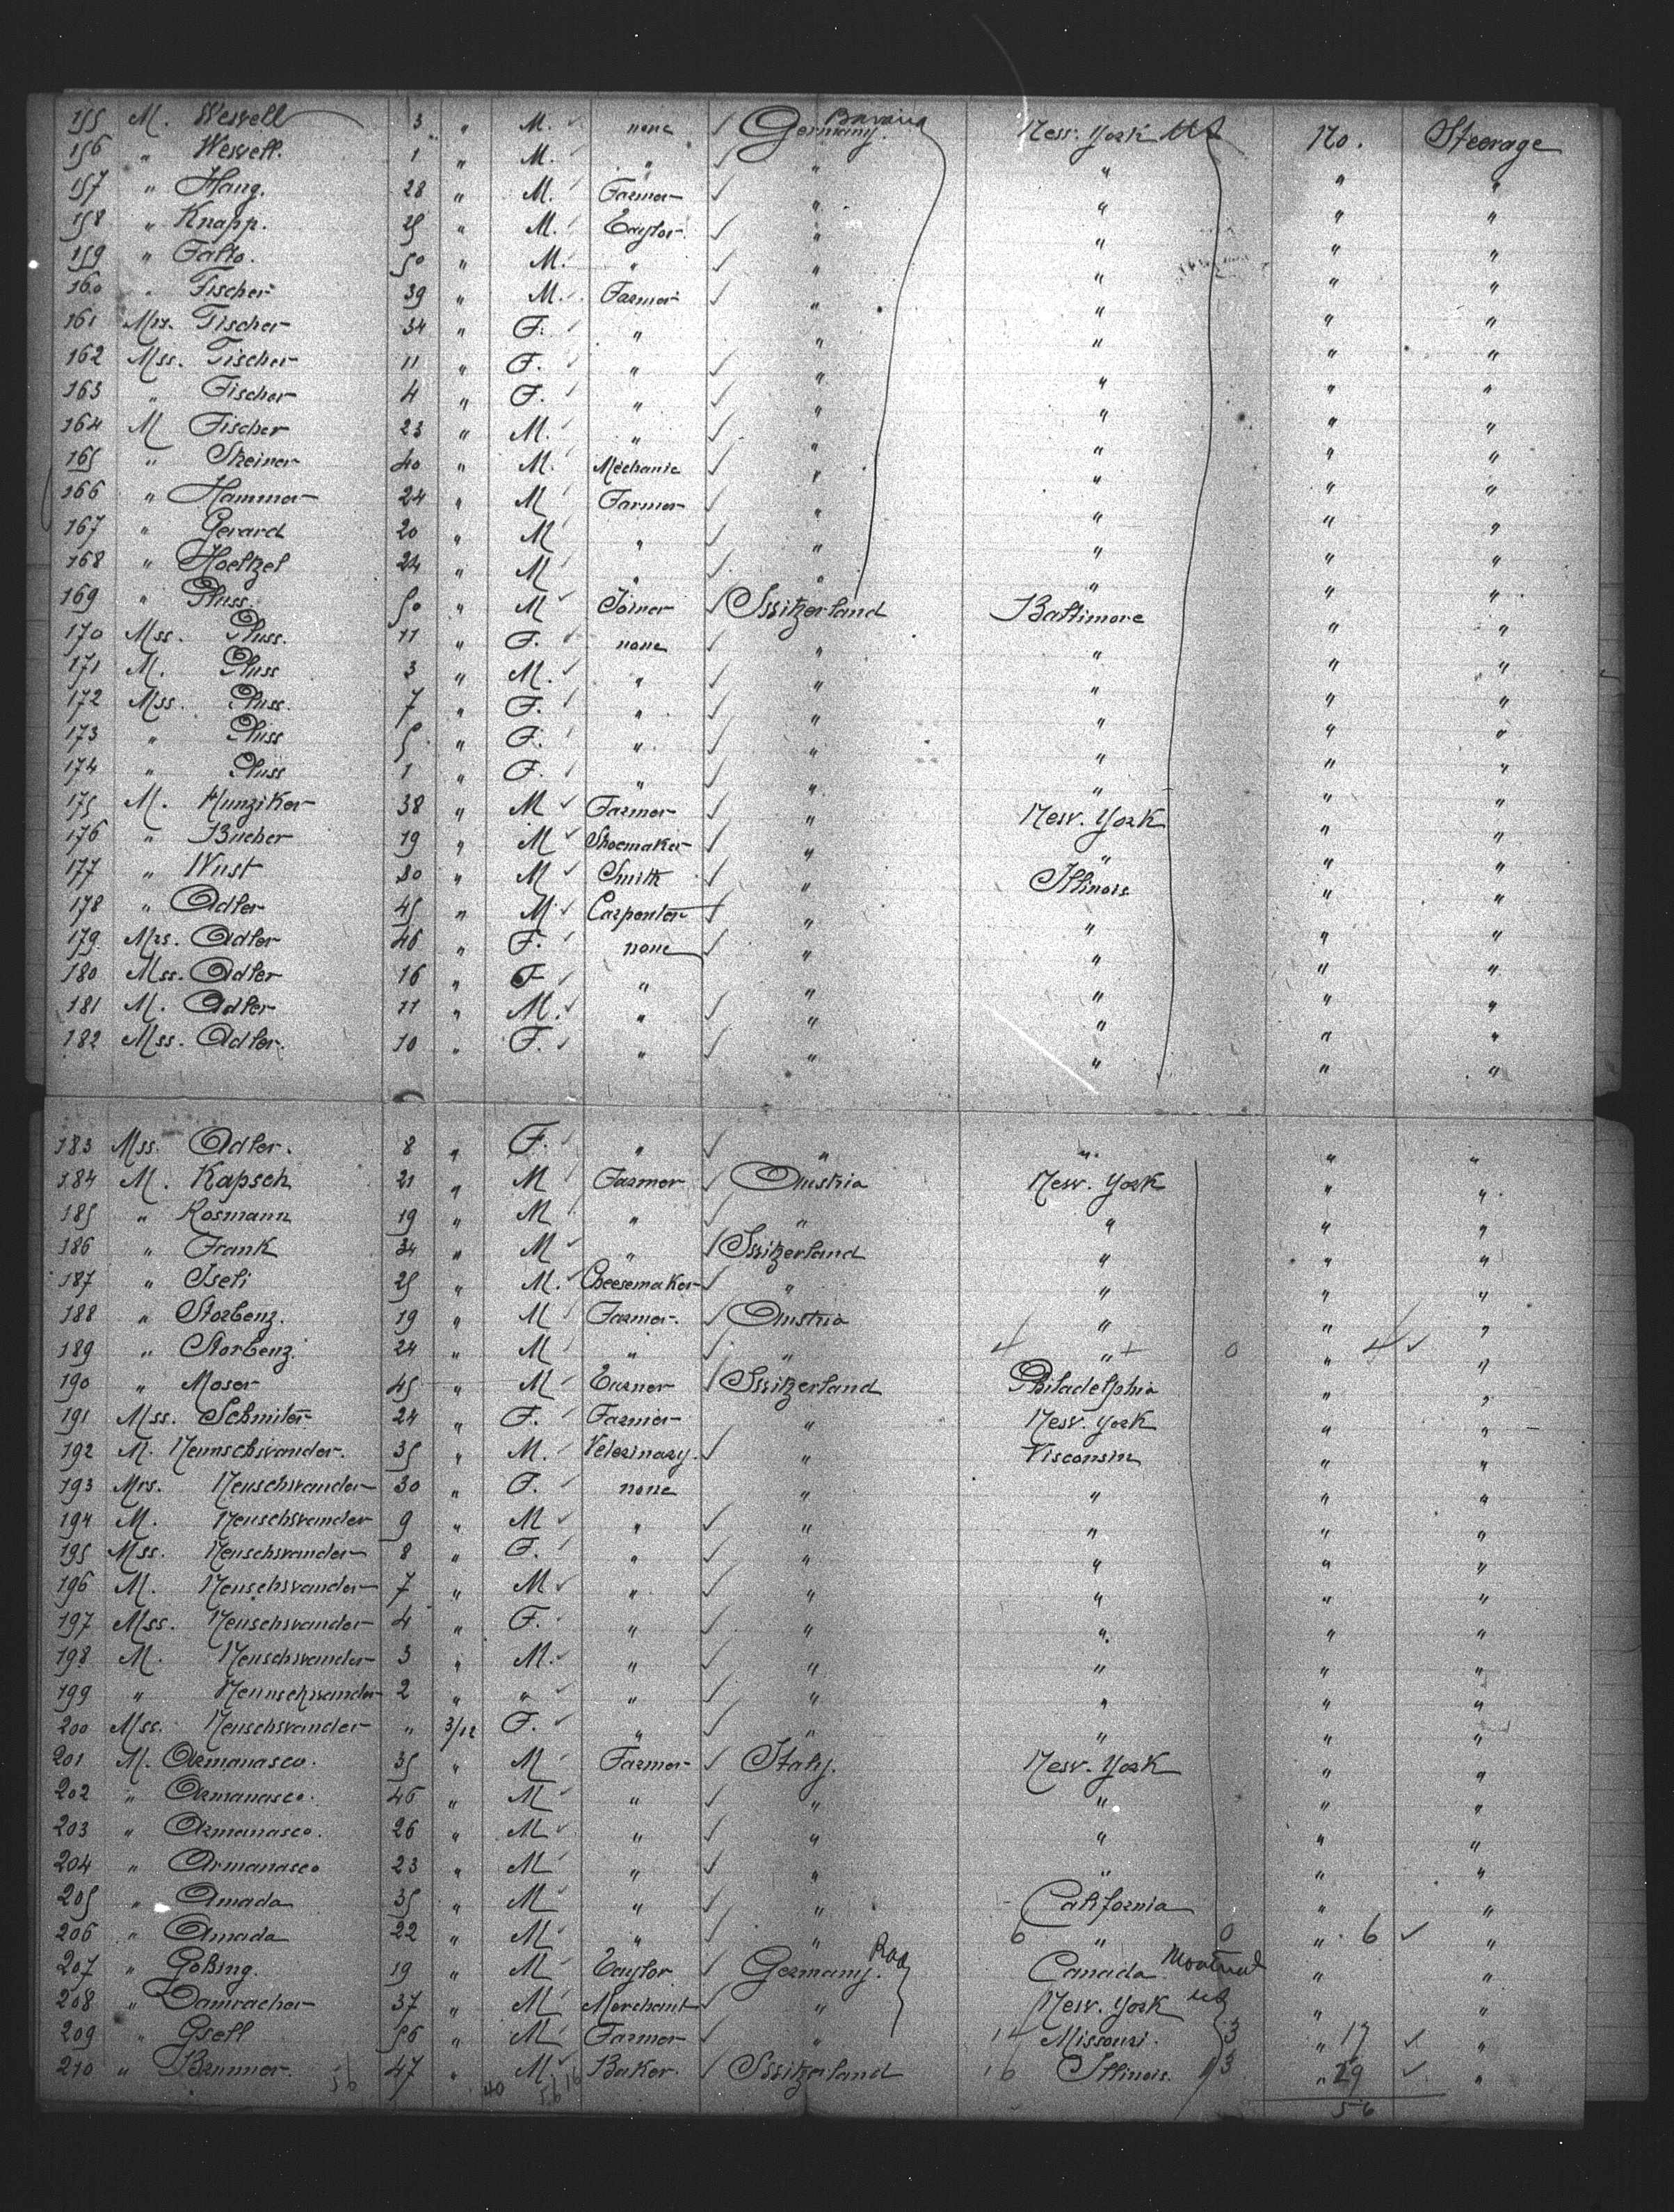 155 M. Wesvell 3 " M. none Germany. Bavaria New. York No. Steerage
156 " Wesvell. 1 " M. " " " " "
157 " Haug. 28 " M. Farmer " " " "
158 " Knapp. 25 " M. Taylor. " " " "
159 " Falto. 50 " M. " " " " "
160 " Fischer 39 " M. Farmer " " " "
161 Mrs. Fischer 34 " F. " " " " "
162 Mss. Fischer 11 " F. " " " " "
163 " Fischer 4 " F. " " " " "
164 M Fischer 23 " M. " " " " "
165 " Steiner 40 " M. Mechanic " " " "
166 " Hammer 24 " M Farmer " " " "
167 " Gerard 20 " M " " " " "
168 " Hoeltzel 24 " M " " " " "
169 " Pluss. 50 " M Joiner Switzerland Baltimore " "
170 Mss. Pluss. 11 " F. none " " " "
171 M. Pluss 3 " M. " " " " "
172 Mss. Pluss. 7 " F. " " " " "
173 " Pluss 5 " F. " " " " "
174 " Pluss 1 " F. " " " " "
175 M. Hunziker 38 " M Farmer " New. York " "
176 " Bucher 19 " M Shoemaker " " " "
177 " Wust 30 " M Smith " Illinois " "
178 " Adler 45 " M Carpenter " " " "
179 Mrs. Adler 46 " F. none " " " "
180 Mss. Adler 16 " F " " " " "
181 M. Adler 11 " M. " " " " "
182 Mss. Adler. 10 " F. " " " " "
183 Mss. Adler. 8 " F. " " " " "
184 M. Kapsch 21 " M Farmer Austria New. York " "
185 " Rosmann 19 " M " " " " "
186 " Frank 34 " M " Switzerland " " "
187 " Iseli 25 " M. Cheesemaker " " " "
188 " Storbenz. 19 " M Farmer. Austria " " "
189 " Storbenz. 24 " M " " " " "
190 " Moser 45 " M Turner Switzerland Philadelphia " "
191 Mss. Schmiter 24 " F. Farmer " New. York " "
192 M. Neunschwander. 35 " M. Veterinary. " Visconsin " "
193 Mrs. Neuschwander 30 " F. none " " " "
194 M. Neuschwander 9 " M " " " " "
195 Mss. Neuschwander 8 " F. " " " " "
196 M. Neuschwander 7 " M " " " " "
197 Mss. Neuschwander 4 " F. " " " " "
198 M. Neuschwander 3 " M. " " " " "
199 " Neunschwander 2 " " " " " " "
200 Mss. Neuschwander " 3/12 F. " " " " "
201 M. Armanasco. 35 " M Farmer Italy. New. York " "
202 " Armanasco. 46 " M " " " " "
203 " Armanasco. 26 " M " " " " "
204 " Armanasco 23 " M " " " " "
205 " Amada 35 " M " " California " "
206 " Amada 22 " M " " 6 " 0 " 6 "
207 " Gobing. 19 " M Taylor Germany. Canada Montreal " "
208 " Damracher 37 " M Merchant " New. York " "
209 " Gsell 56 " M Farmer " 14 Missouri. 3 " 17 "
210 " Brunner. 56 47 " 40 M. 56 16 Baker. Switzerland 16 Illinois. 13 " 29 "
56